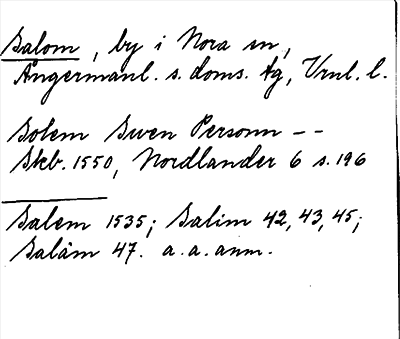 Salom, by i Nora sn,
Ångermanl. s. doms. tg, Vrnl. l.
Solem Swen Personn - -
Skb. 1550, Nordlander 6 s. 196
Salem 1535; Salim 42, 43, 45;
Salåm 47. a. a. anm.